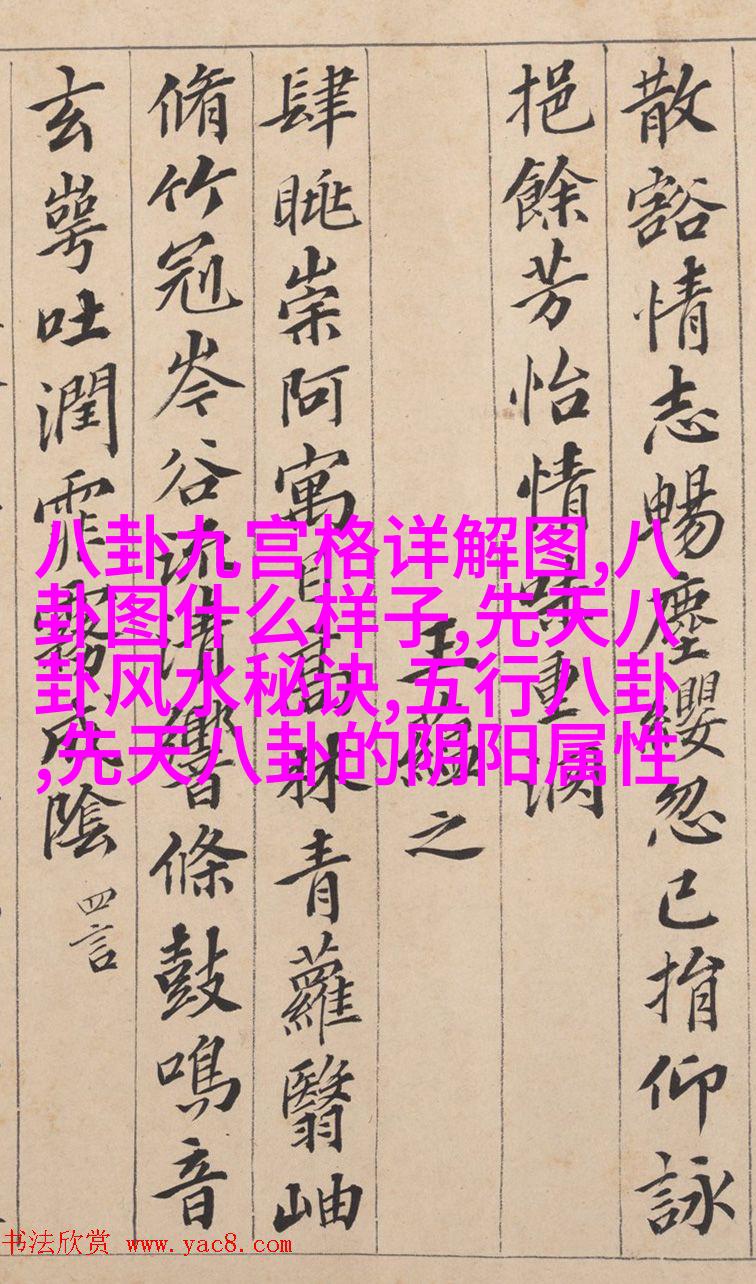 散豁情志暢塵纓忽已捐仰詠
挹餘芳怡情味重淵
王蘊之
肆眺崇阿寓目高林青蘿翳岫
脩竹冠岑谷流清響條鼓鳴音
玄崿吐潤霏霧成陰
四言
八卦九宫格详解图,八
卦图什么样子,先天八
卦风水秘诀,五行八卦
,先天八卦的阴阳属性
书法欣赏 www.yac8.com